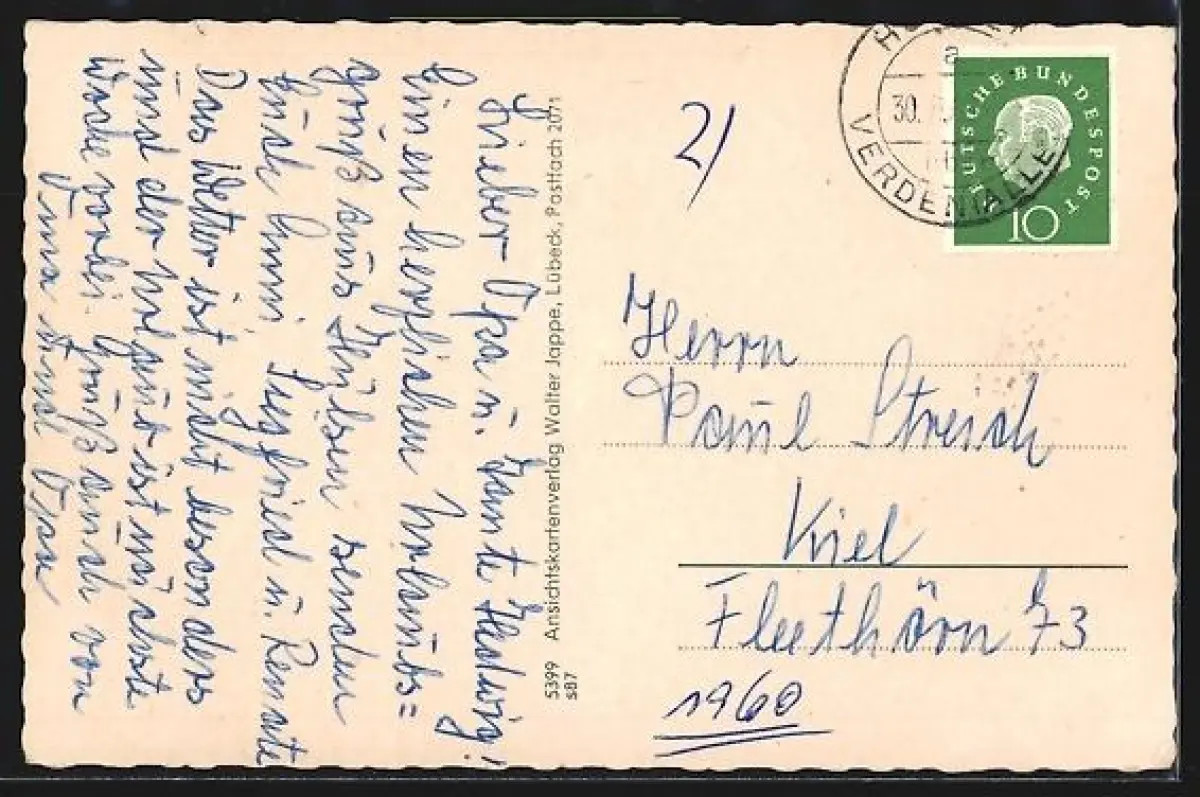 Lieber Opa u. Tante Hedwig!
Einen herzlichen Urlaubs=
gruß aus Hülsen senden
Euch Hanni, Siegfried u. Renate
Das Wetter ist nicht besonders
und der Urlaub ist nächste
Woche vorbei. Gruß auch von
Oma und Opa
5399 Ansichtskartenverlag Walter Jappe, Lübeck, Postfach 2071
s87
2)
a
30.
VERDEN(ALLER
DEUTSCHE BUNDESPOST
10
Herrn
Paul Streich
Kiel
Fleethörn 73
1960